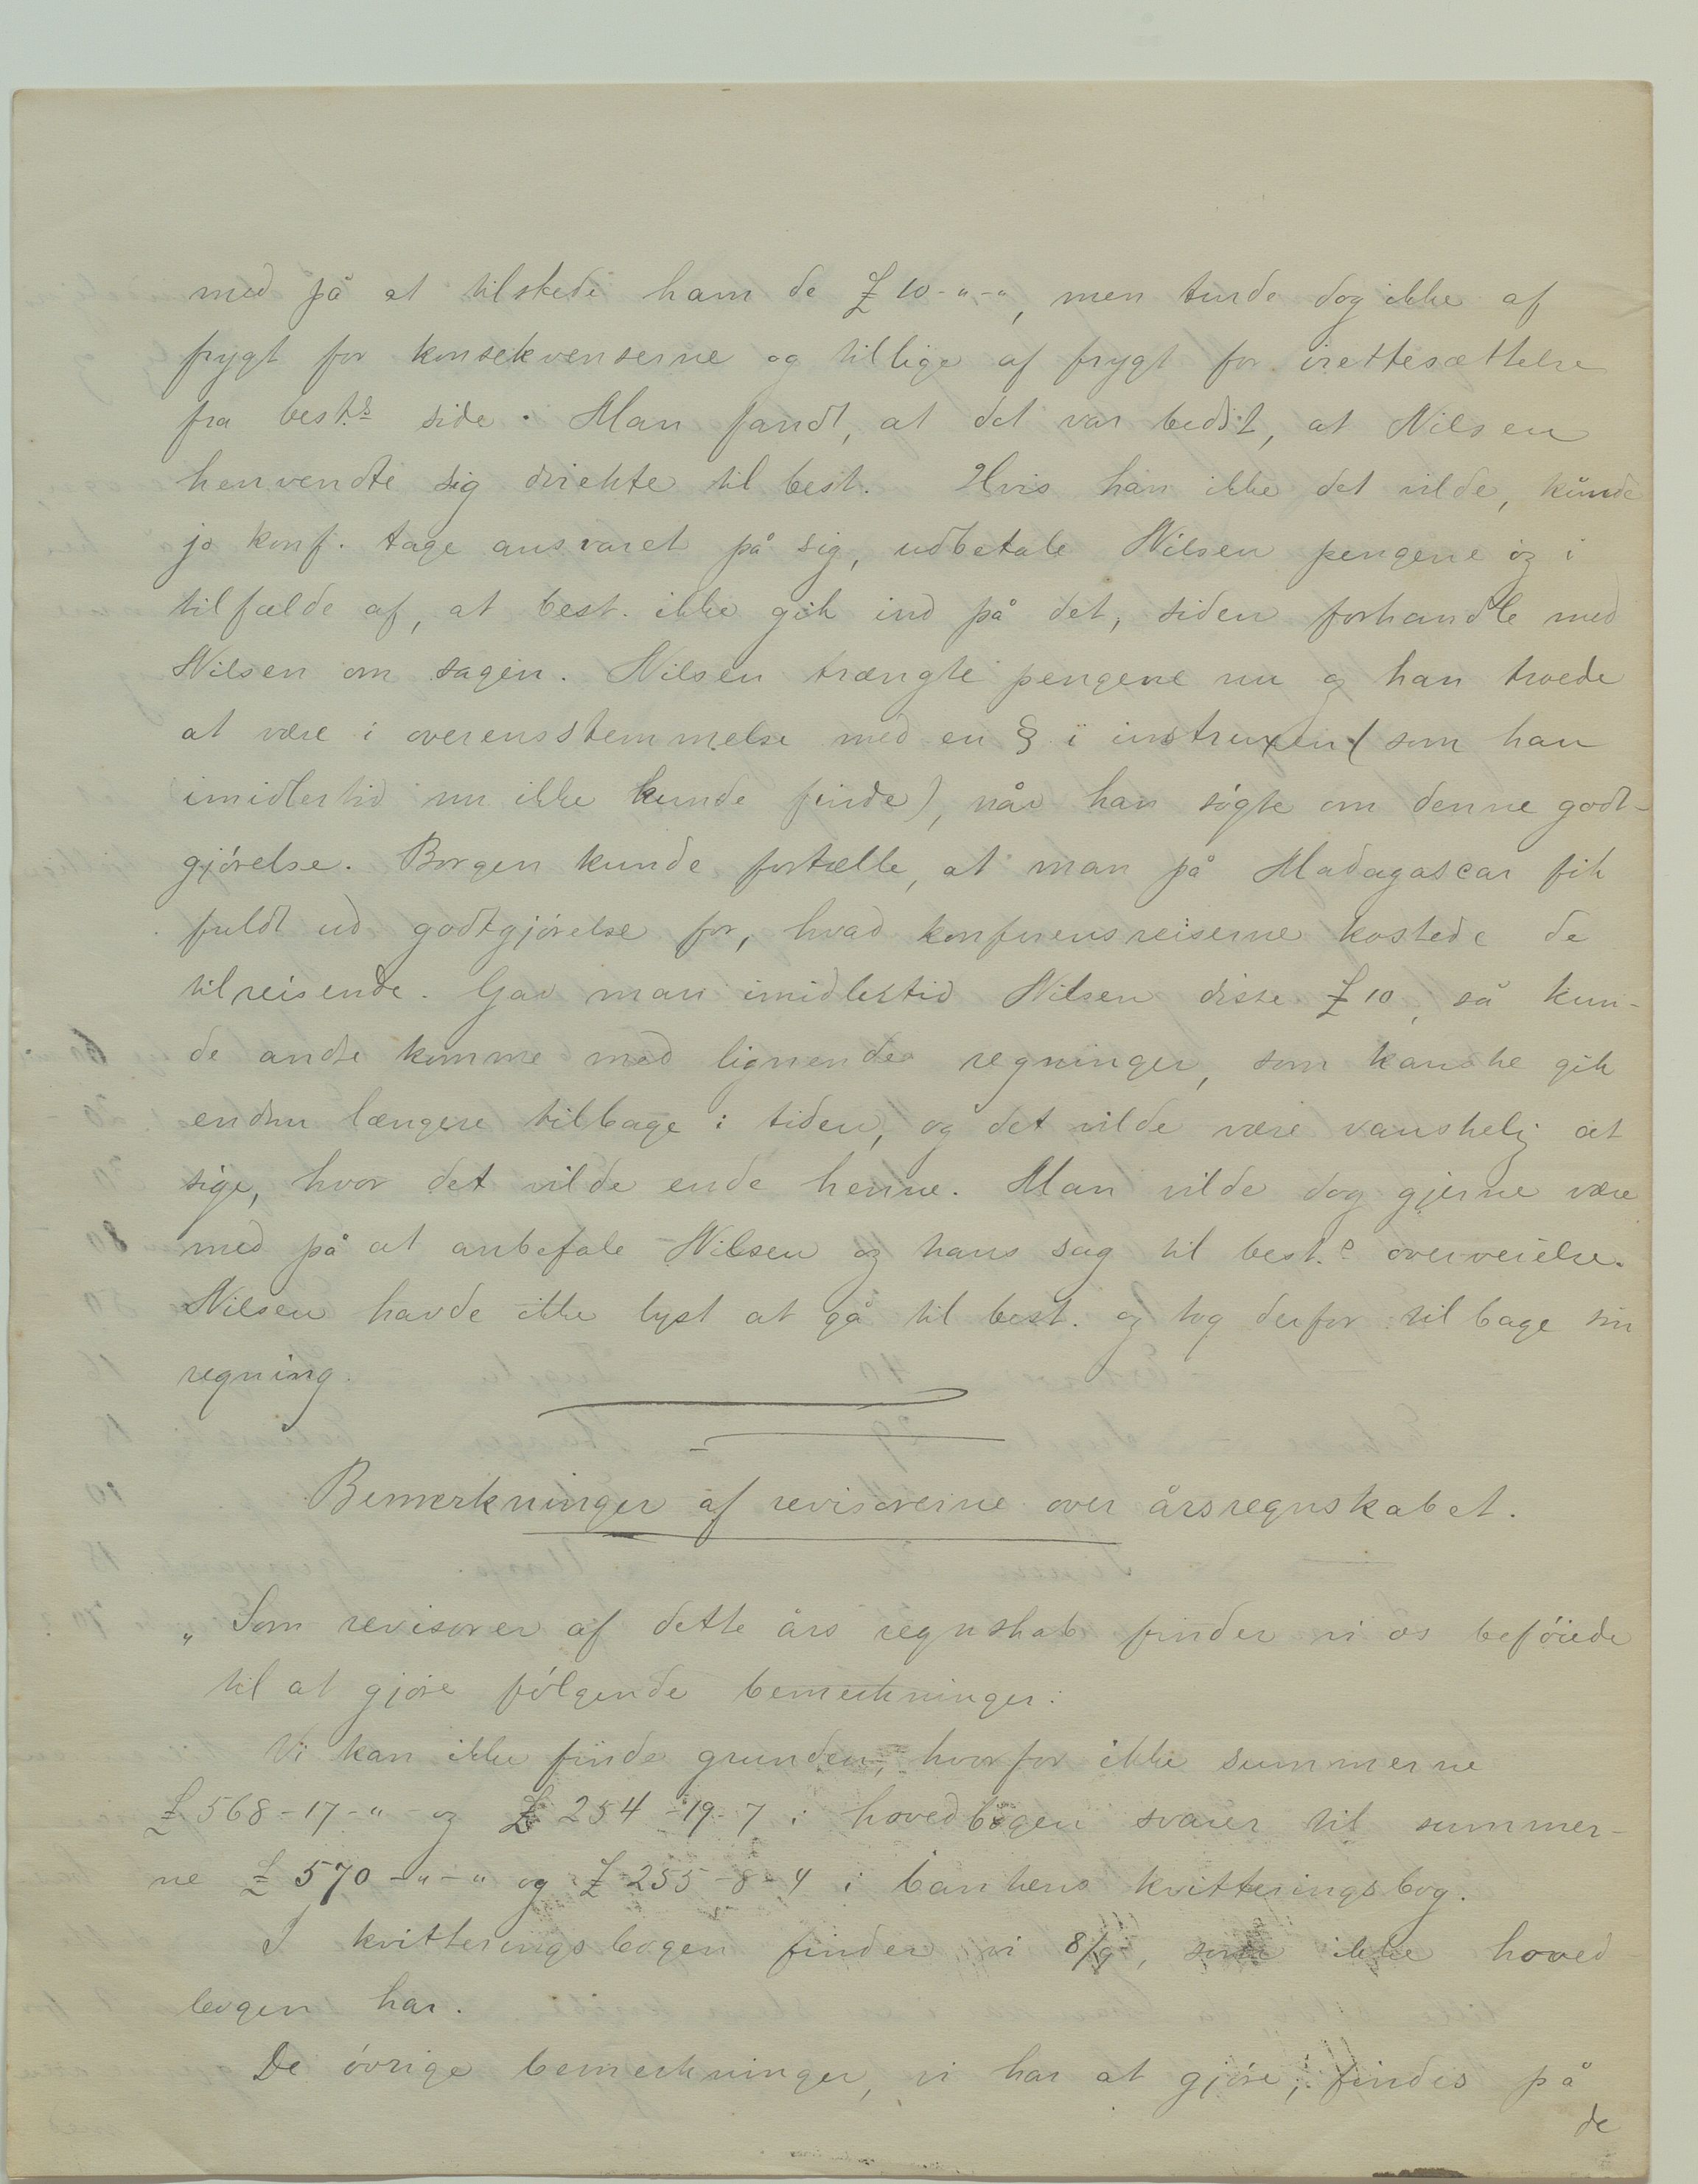 med på at tilstede ham de £ 10-"-", men turde dog ikke af
frygt for konsekvenserne og tillige af frygt for irettesættelse
fra best.s side. Man fandt, at det var bedst, at Nilsen
henvendte sig direkte til best. Hvis han ikke det vilde, kunde
jo konf. tage ansvaret på sig, udbetale Nilsen pengene og i
tilfælde af, at best. ikke gik ind på det, siden forhandle med
Nilsen om sagen. Nilsen trængte pengene nu og han troede
at være i overensstemmelse med en § i instruxen (som han
imidlertid nu ikke kunde finde), når han søgte om denne godt-
gjørelse. Borgen kunde fortælle, at man på Madagascar fik
fuldt ud godtgjørelse for, hvad konferensreiserne kostede de
tilreisende. Gav man imidlertid Nilsen disse £ 10, så kun-
de andre komme med lignende regninger, som kanske gik
endnu længere tilbage i tiden, og det vilde være vanskelig at
sige, hvor det vilde ende henne. Man vilde dog gjerne være
med på at anbefale Nilsen og hans sag til best.s overveielse.
Nilsen havde ikke lyst at gå til best. og tog derfor tilbage sin
regning.
Bemerkninger af revisorerne over årsregnskabet.
„Som revisorer af dette års regnskab finder vi os beføiede
til at gjøre følgende bemerkninger:
Vi kan ikke finde grunden, hvorfor ikke summerne
£ 568-17-" og £ 254-19-7 i hovedbogen svarer til summer-
ne £ 570-"-" og £ 255-8-4 i bankens kvitteringsbog.
I kvitteringsbogen finder vi 8/9, som ikke hoved
bogen har.
De øvrige bemerkninger, vi har at gjøre, findes på
de